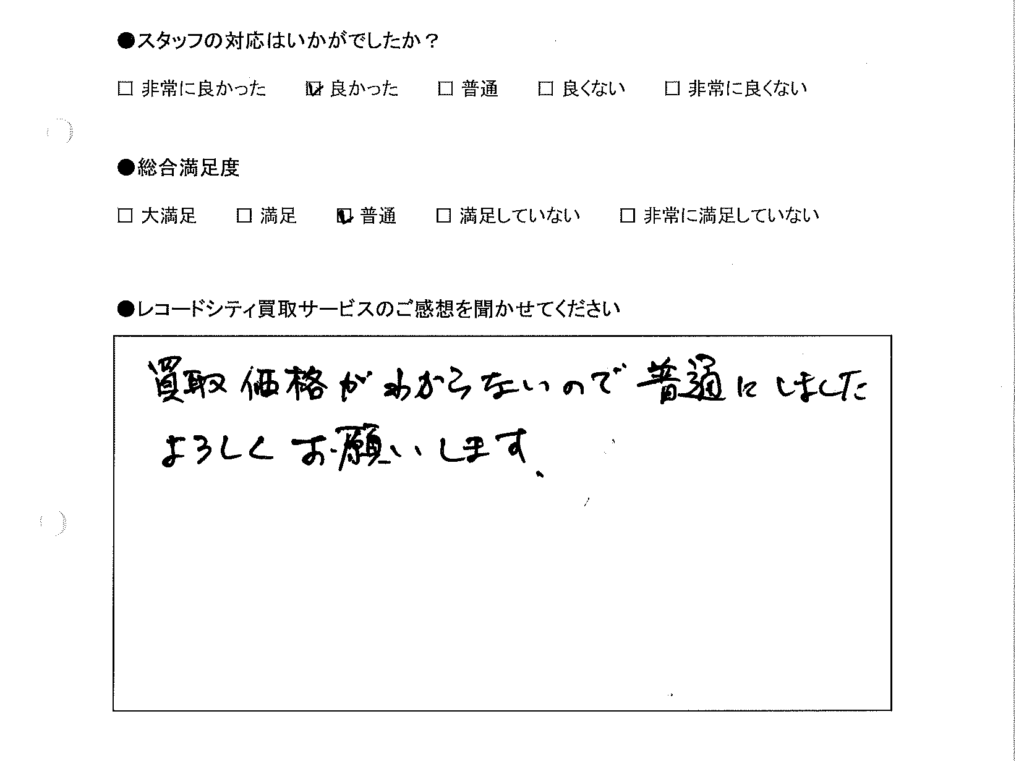 ●スタッフの対応はいかがでしたか？
□ 非常に良かった ☑ 良かった □ 普通 □ 良くない □ 非常に良くない
●総合満足度
□ 大満足 □ 満足 ☑ 普通 □ 満足していない □ 非常に満足していない
●レコードシティ買取サービスのご感想を聞かせてください
買取価格がわからないので普通にしました
よろしくお願いします、